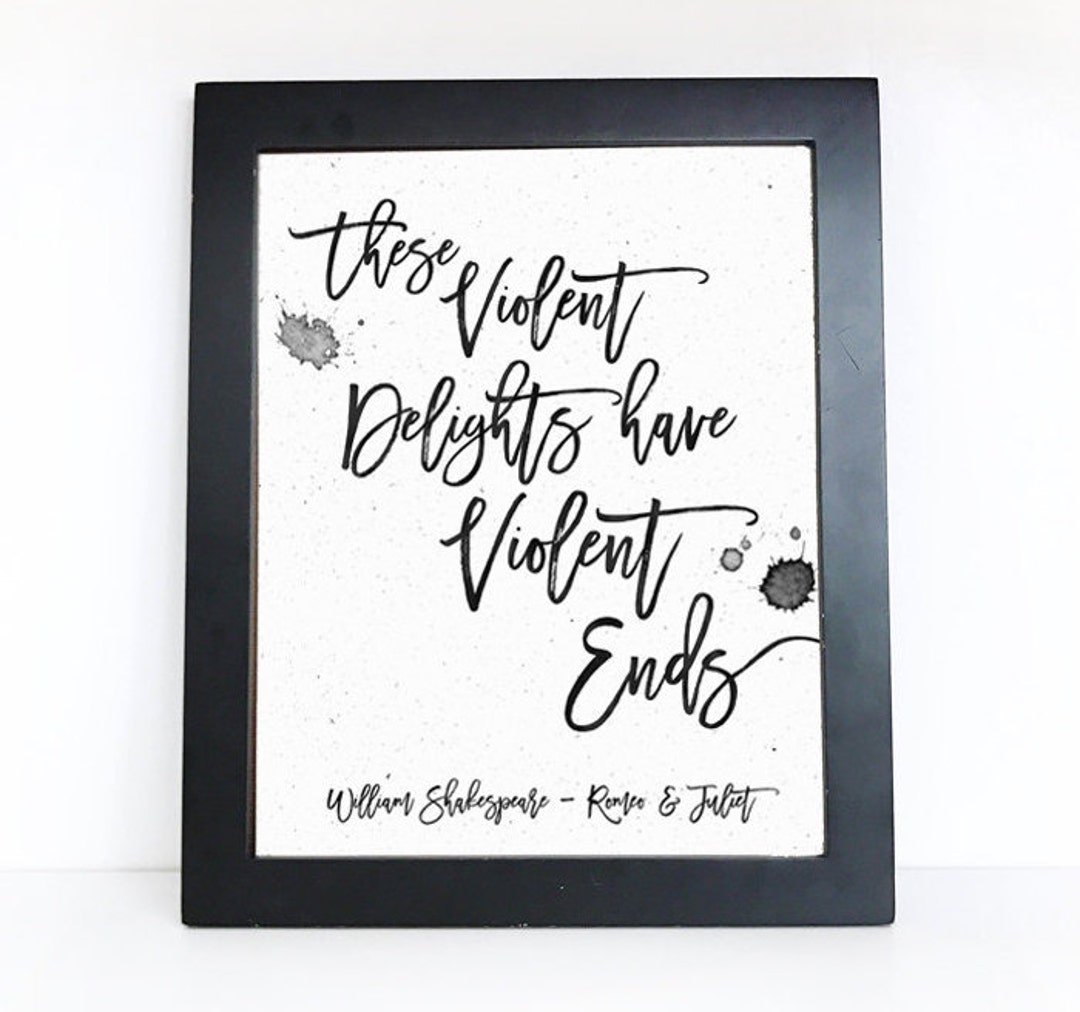 these
Violent
Delights have
Violent
Ends
William Shakespeare – Romeo & Juliet